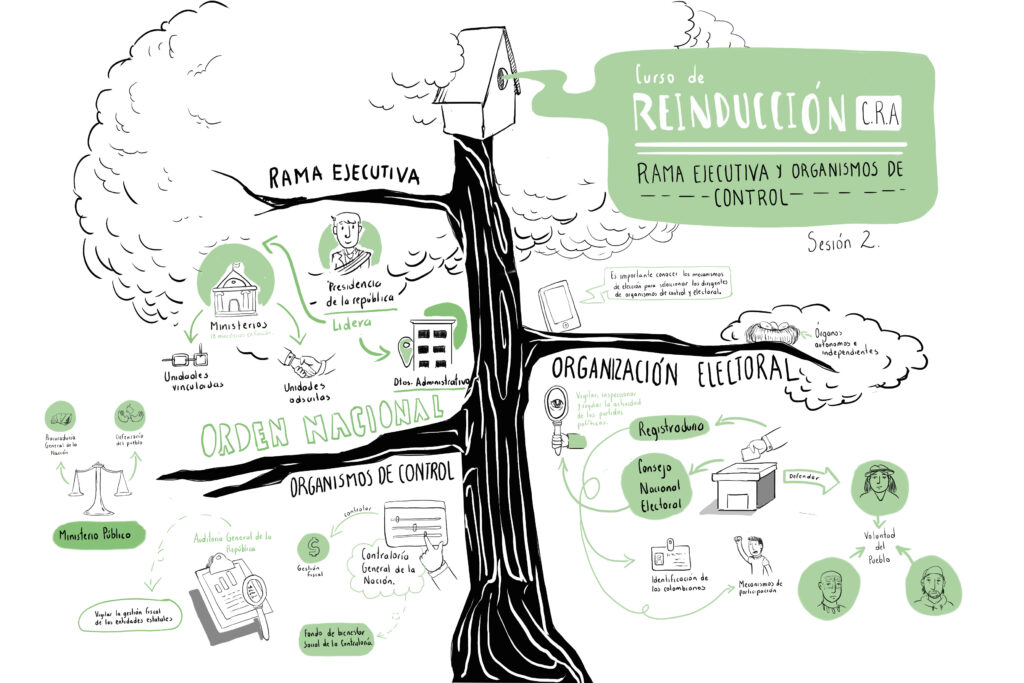 Curso de
REINDUCCIÓN C.R.A
RAMA EJECUTIVA Y ORGANISMOS DE
CONTROL
Sesión 2.
RAMA EJECUTIVA
Presidencia
de la república
Lidera
Ministerios
Unidades
vinculadas
Unidades
adscritas
Dtos. Administrativo
ORDEN NACIONAL
Es importante conocer los mecanismos
de elección para seleccionar los dirigentes
de organismos de control y electoral.
Órganos
autónomos e
independientes
ORGANIZACIÓN ELECTORAL
Vigilar, inspeccionar
y regular la actividad
de los partidos
políticos.
Registraduria
Consejo
Nacional
Electoral
Defender
Voluntad
del
Pueblo
Identificación de
los colombianos
Mecanismos de
participación
ORGANISMOS DE CONTROL
Procuraduría
General de la
Nación
Defensoría
del pueblo
Ministerio Público
Auditoría General de la
República
Vigilar la gestión fiscal
de las entidades estatales
controlar
Gestión
fiscal
Contraloría
General de la
Nación.
Fondo de bienestar
Social de la Contraloría